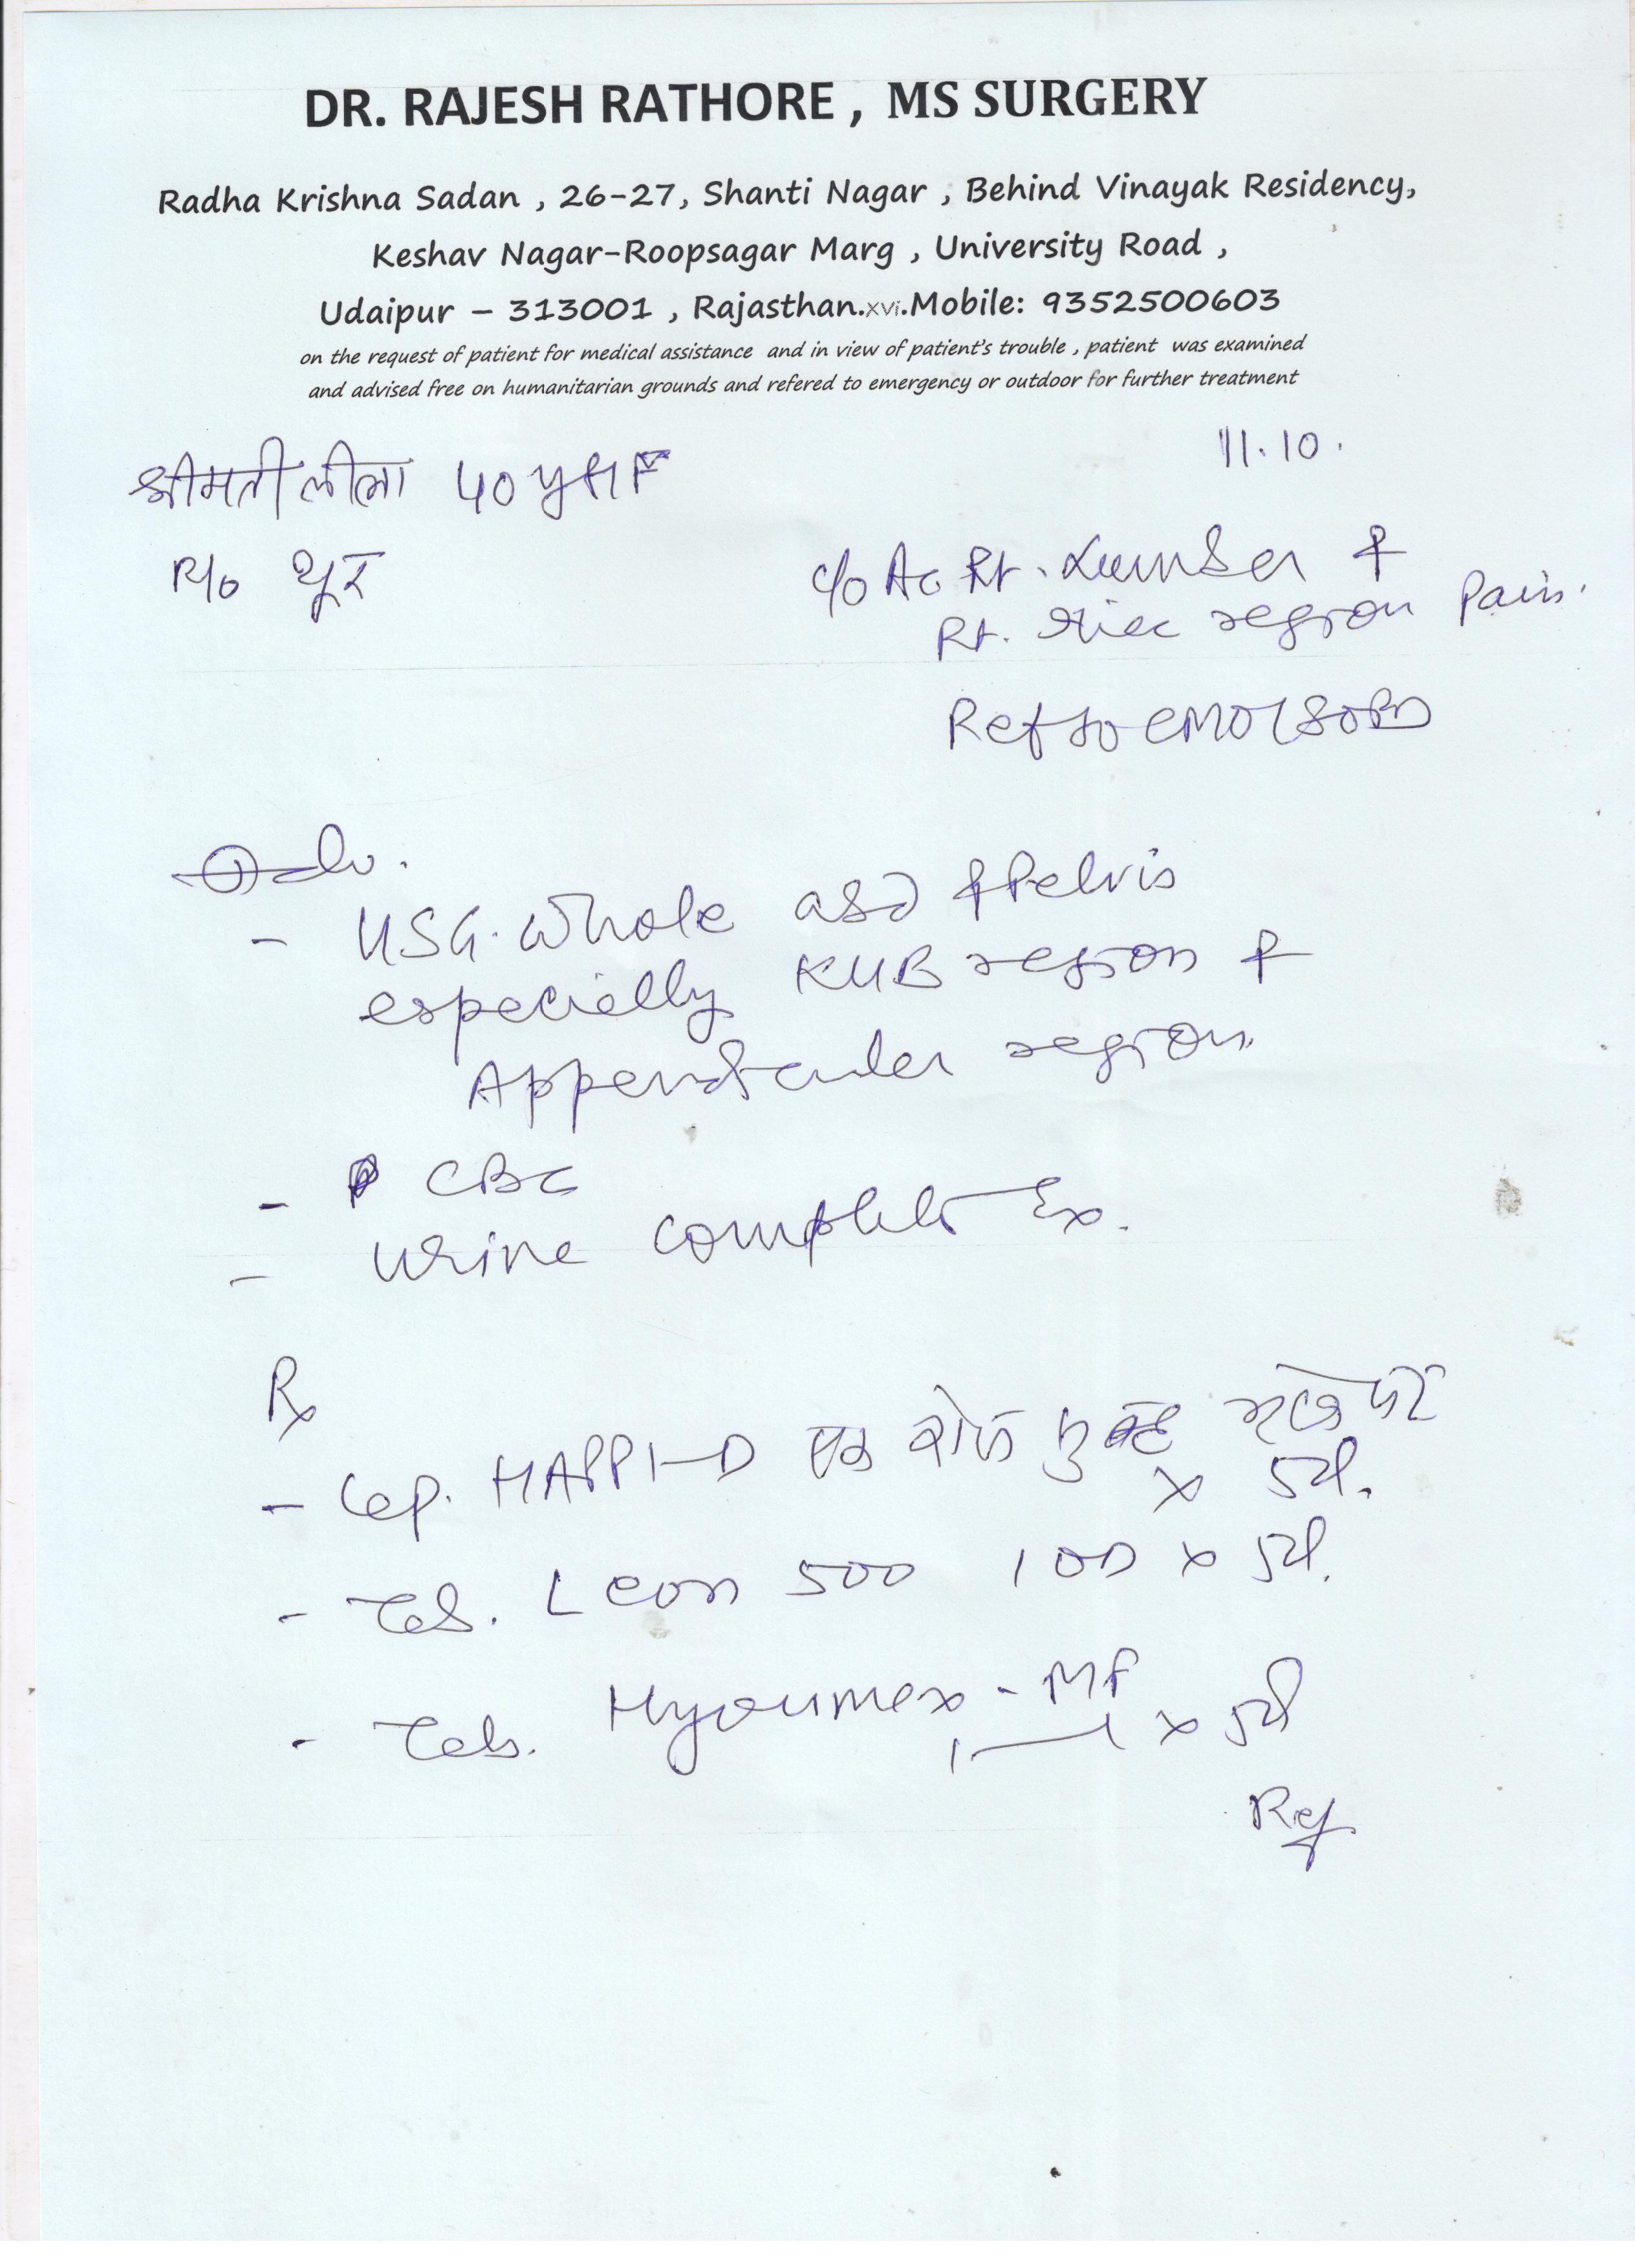 DR. RAJESH RATHORE , MS SURGERY
Radha Krishna Sadan , 26-27, Shanti Nagar , Behind Vinayak Residency,
Keshav Nagar-Roopsagar Marg , University Road ,
Udaipur – 313001 , Rajasthan.xvi.Mobile: 9352500603
on the request of patient for medical assistance and in view of patient's trouble , patient was examined
and advised free on humanitarian grounds and refered to emergency or outdoor for further treatment
11.10.
श्रीमती लीला 40 yr F
R/o थूर
c/o Ac Rt. Lumber &
Rt. iliac region Pain.
Ref to EMO/SOPD
Adv.
- USG. Whole abd & Pelvis
especially KUB region &
Appendicular region
- CBC
- Urine complete Ex.
Rx
- Cap. HAPPI-D एक रोज सुबह भूखे पेट
x 5d.
- Tab. Leon 500 1 OD x 5d.
- Tab. Hyoumex - MF
1—1 x 5d